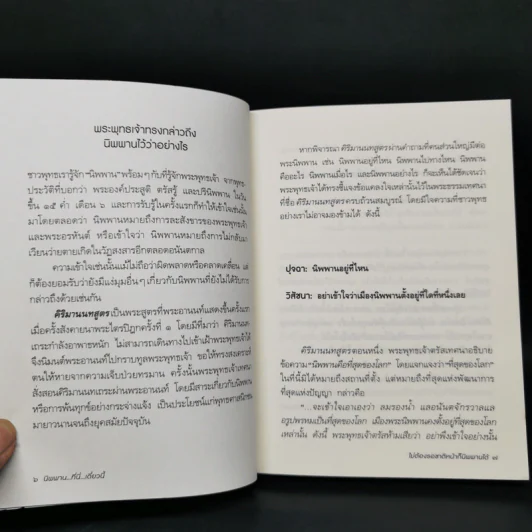 พระพุทธเจ้าทรงกล่าวถึง
นิพพานไว้ว่าอย่างไร
ชาวพุทธเรารู้จัก “นิพพาน” พร้อมๆ กับที่รู้จักพระพุทธเจ้า จากพุทธ-
ประวัติที่บอกว่า พระองค์ประสูติ ตรัสรู้ และปรินิพพาน ในวัน
ขึ้น ๑๕ ค่ำ เดือน ๖ และการรับรู้ในครั้งแรกก็ทำให้เข้าใจเช่นนั้น
มาโดยตลอดว่า นิพพานหมายถึงการละสังขารของพระพุทธเจ้า
และพระอรหันต์ หรือเข้าใจว่า นิพพานหมายถึงการไม่กลับมา
เวียนว่ายตายเกิดในวัฏสงสารอีกตลอดอนันตกาล
ความเข้าใจเช่นนั้นแม้ไม่ถือว่าผิดพลาดหรือคลาดเคลื่อน แต่
ก็ต้องยอมรับว่ายังมีแง่มุมอื่นๆ เกี่ยวกับนิพพานที่ยังไม่ได้รับการ
กล่าวถึงด้วยเช่นกัน
คิริมานนทสูตร เป็นพระสูตรที่พระอานนท์แสดงขึ้นครั้งแรก
เมื่อครั้งสังคายนาพระไตรปิฎกครั้งที่ ๑ โดยมีที่มาว่า คิริมานนท
เถระกำลังอาพาธหนัก ไม่สามารถเดินทางไปเข้าเฝ้าพระพุทธเจ้าได้
จึงนิมนต์พระอานนท์ไปกราบทูลพระพุทธเจ้า ขอให้ทรงสงเคราะห์
ตนให้หายจากความเจ็บป่วยทรมาน ครั้งนั้นพระพุทธเจ้าทรง
สั่งสอนคิริมานนทเถระผ่านพระอานนท์ โดยมีสาระเกี่ยวกับนิพพาน
หรือการพ้นทุกข์อย่างกระจ่างแจ้ง เป็นประโยชน์แก่พุทธศาสนิกชน
มายาวนานจนถึงยุคสมัยปัจจุบัน
๖ นิพพาน...ที่นี่...เดี๋ยวนี้
หากพิจารณา คิริมานนทสูตร ผ่านคำถามที่คนส่วนใหญ่มีต่อ
พระนิพพาน เช่น นิพพานอยู่ที่ไหน นิพพานไปทางไหน นิพพาน
คืออะไร นิพพานเมื่อไร และนิพพานอย่างไร ก็จะเห็นได้ชัดเจนว่า
พระพุทธเจ้าได้ทรงชี้แจงข้อแคลงใจเหล่านั้นไว้ในพระธรรมเทศนา
ที่ชื่อ คิริมานนทสูตร ครบถ้วนสมบูรณ์ โดยมีใจความที่ชาวพุทธ
อย่างเราไม่อาจมองข้ามได้ ดังนี้
ปุจฉา: นิพพานอยู่ที่ไหน
วิสัชนา: อย่าเข้าใจว่าเมืองนิพพานตั้งอยู่ที่ใดที่หนึ่งเลย
คิริมานนทสูตร ตอนหนึ่ง พระพุทธเจ้าตรัสเทศนาอธิบาย
ข้อความ “นิพพานคือที่สุดของโลก” โดยแจกแจงว่า “ที่สุดของโลก”
ในที่นี้มิได้หมายถึงสถานที่ตั้ง แต่หมายถึงที่สุดแห่งพัฒนาการ
ที่สุดแห่งปัญญา กล่าวคือ
“...จะเข้าใจเอาเองว่า ลมรองน้ำ และอนันตจักรวาลแล
อรูปพรหมเป็นที่สุดของโลก เมืองพระนิพพานคงตั้งอยู่ที่สุดของโลก
เหล่านั้น ดังนี้ พระพุทธเจ้าตรัสห้ามเสียว่า อย่าพึงเข้าใจอย่างนั้น
ไม่ต้องรอชาติหน้าก็นิพพานได้ ๗